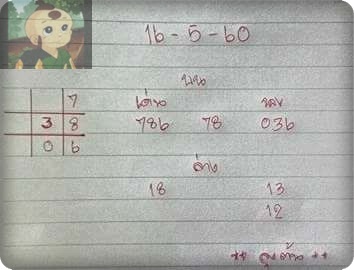 16 - 5 - 60
บน
7 เด่น รอง
3 8 786 78 036
0 6
ล่าง
18 13
12